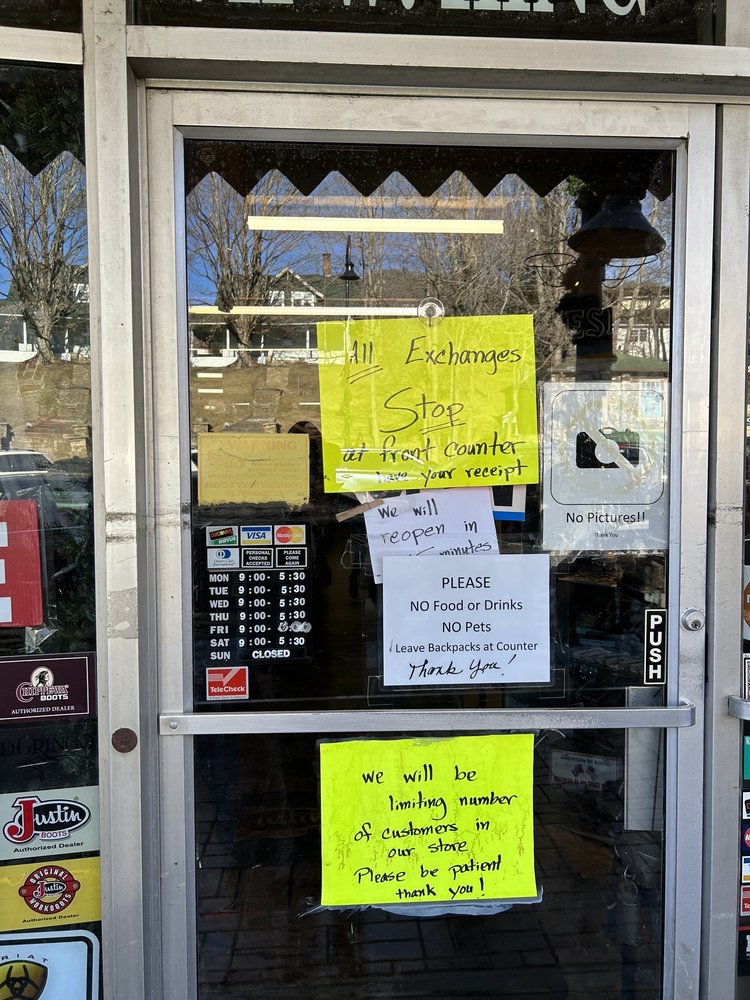 All Exchanges
Stop
at front counter
have your receipt
WARNING
No Pictures!!
Thank You
We will
reopen in
minutes
DISCOVER
NOVUS
VISA
MasterCard
PERSONAL
CHECKS
ACCEPTED
PLEASE
COME
AGAIN
MON 9:00- 5:30
TUE 9:00- 5:30
WED 9:00- 5:30
THU 9:00- 5:30
FRI 9:00-
SAT 9:00- 5:30
SUN CLOSED
TeleCheck
PLEASE
NO Food or Drinks
NO Pets
Leave Backpacks at Counter
Thank You!
PUSH
CHIPPEWA
BOOTS
AUTHORIZED DEALER
Justin
BOOTS
Authorized Dealer
ORIGINAL
Justin
WORKBOOTS
Authorized Dealer
ARIAT
we will be
limiting number
of customers in
our store
Please be patient
thank you!